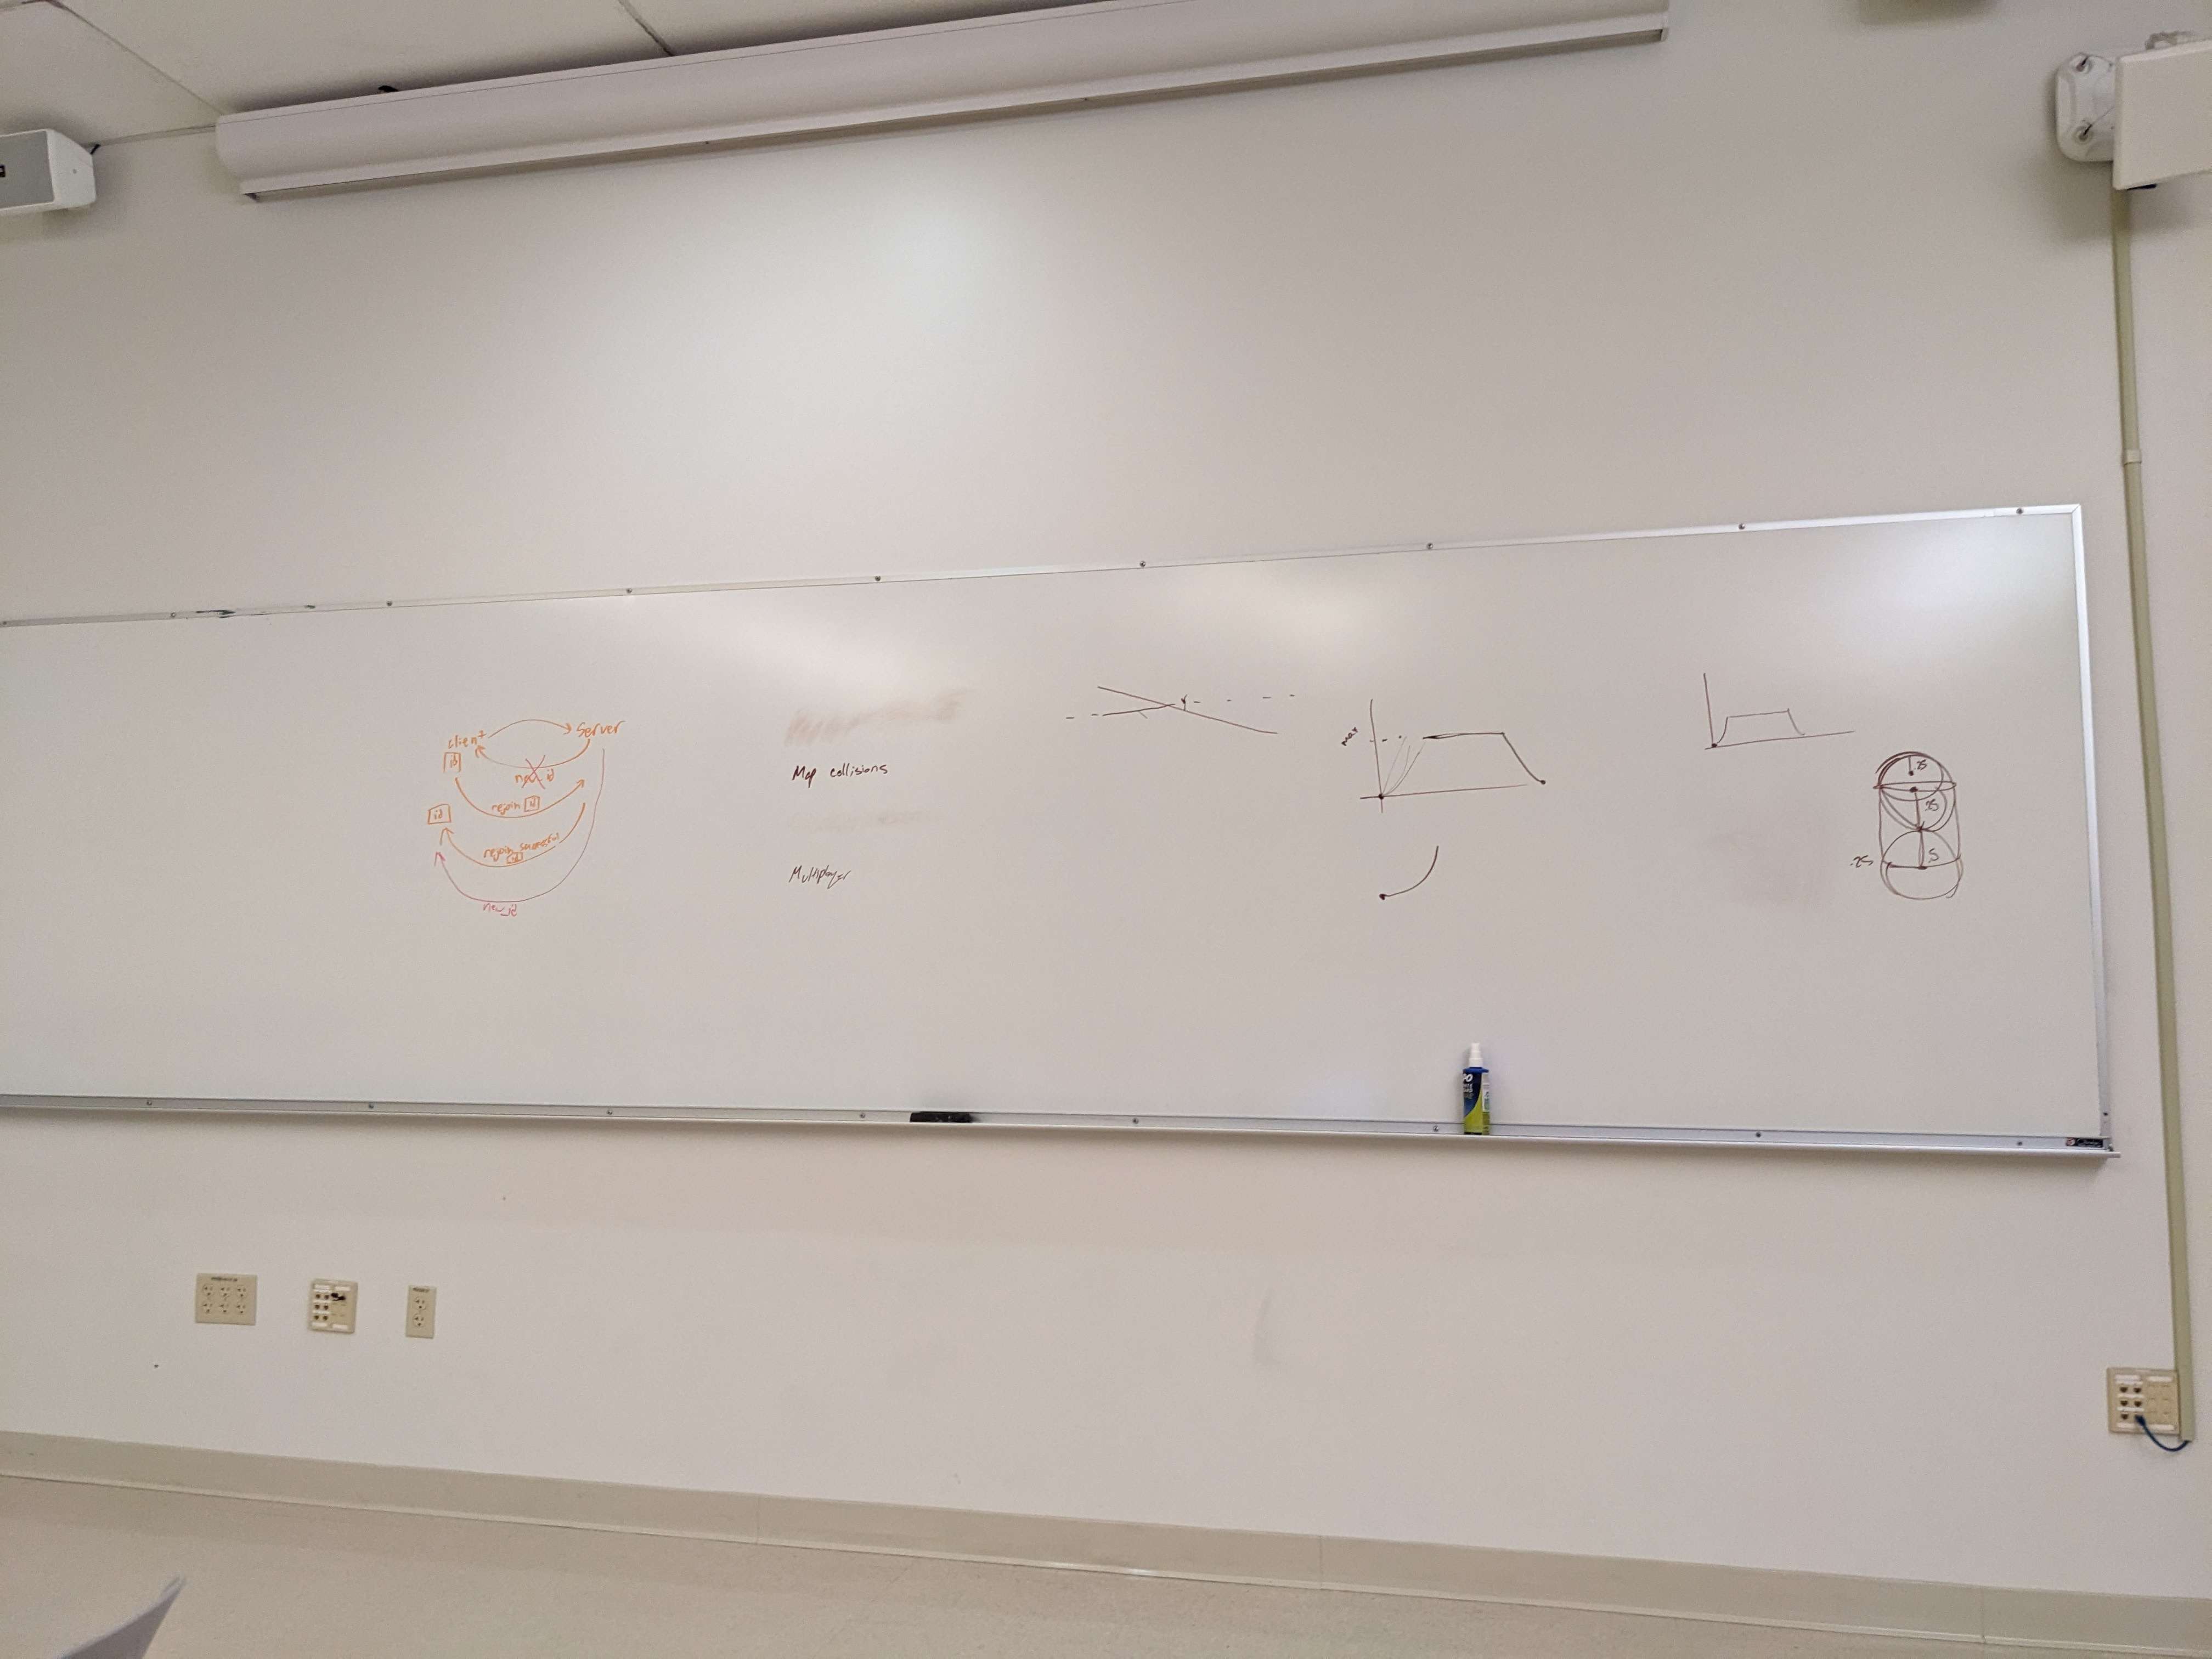 client
Server
id
new_id
rejoin id
id
rejoin successful
id
new_id
Map collisions
Multiplayer
max
.25
.25
.5
.25